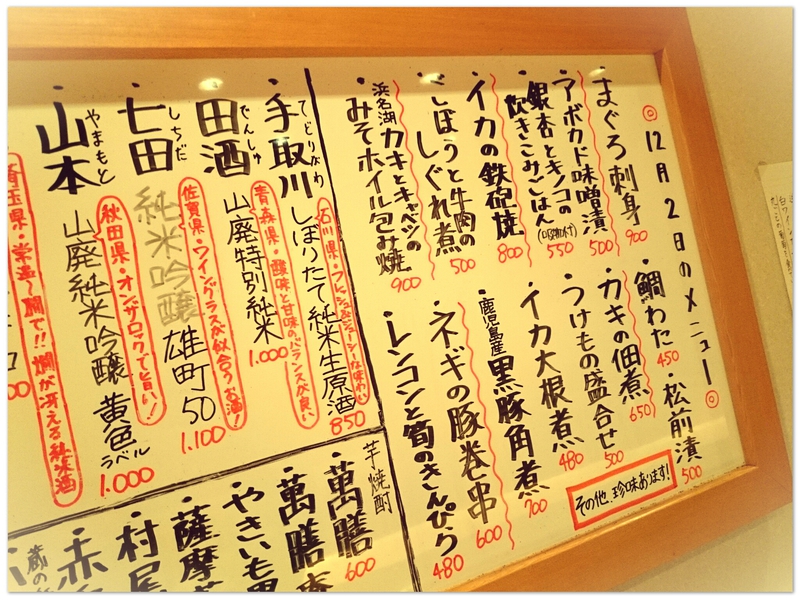 ◎12月2日のメニュー◎
・まぐろ刺身 900
・アボカド味噌漬 500
・銀杏とキノコの
炊きこみごはん 550
・イカの鉄砲焼 800
・ごぼうと牛肉の
しぐれ煮 500
・浜名湖カキとキャベツの
みそホイル包み焼 900
・鯛わた 450
・松前漬 500
・カキの佃煮 650
・うけもの盛合せ 500
・イカ大根煮 480
・鹿児島産黒豚角煮 700
・ネギの豚巻串 600
・レンコンと筍のきんぴら 480
その他、珍味あります!
・手取川 てどりがわ
しぼりたて純米生原酒 850
石川県・フレッシュ&ジューシーな味わい
・田酒 でんしゅ
山廃特別純米 1.000
青森県・酸味と甘味のバランスが良い
・七田 しちだ
純米吟醸 雄町50 1.100
佐賀県・ワイングラスが似合うお酒!
・山本 やまもと
山廃純米吟醸 黄色ラベル 1.000
秋田県・オンザロックでも旨い!
埼玉県・常温〜燗で!!燗が冴える純米酒
芋焼酎
・萬膳 600
・萬膳
・やきいも黒
・薩摩
・村尾
・赤
蔵の